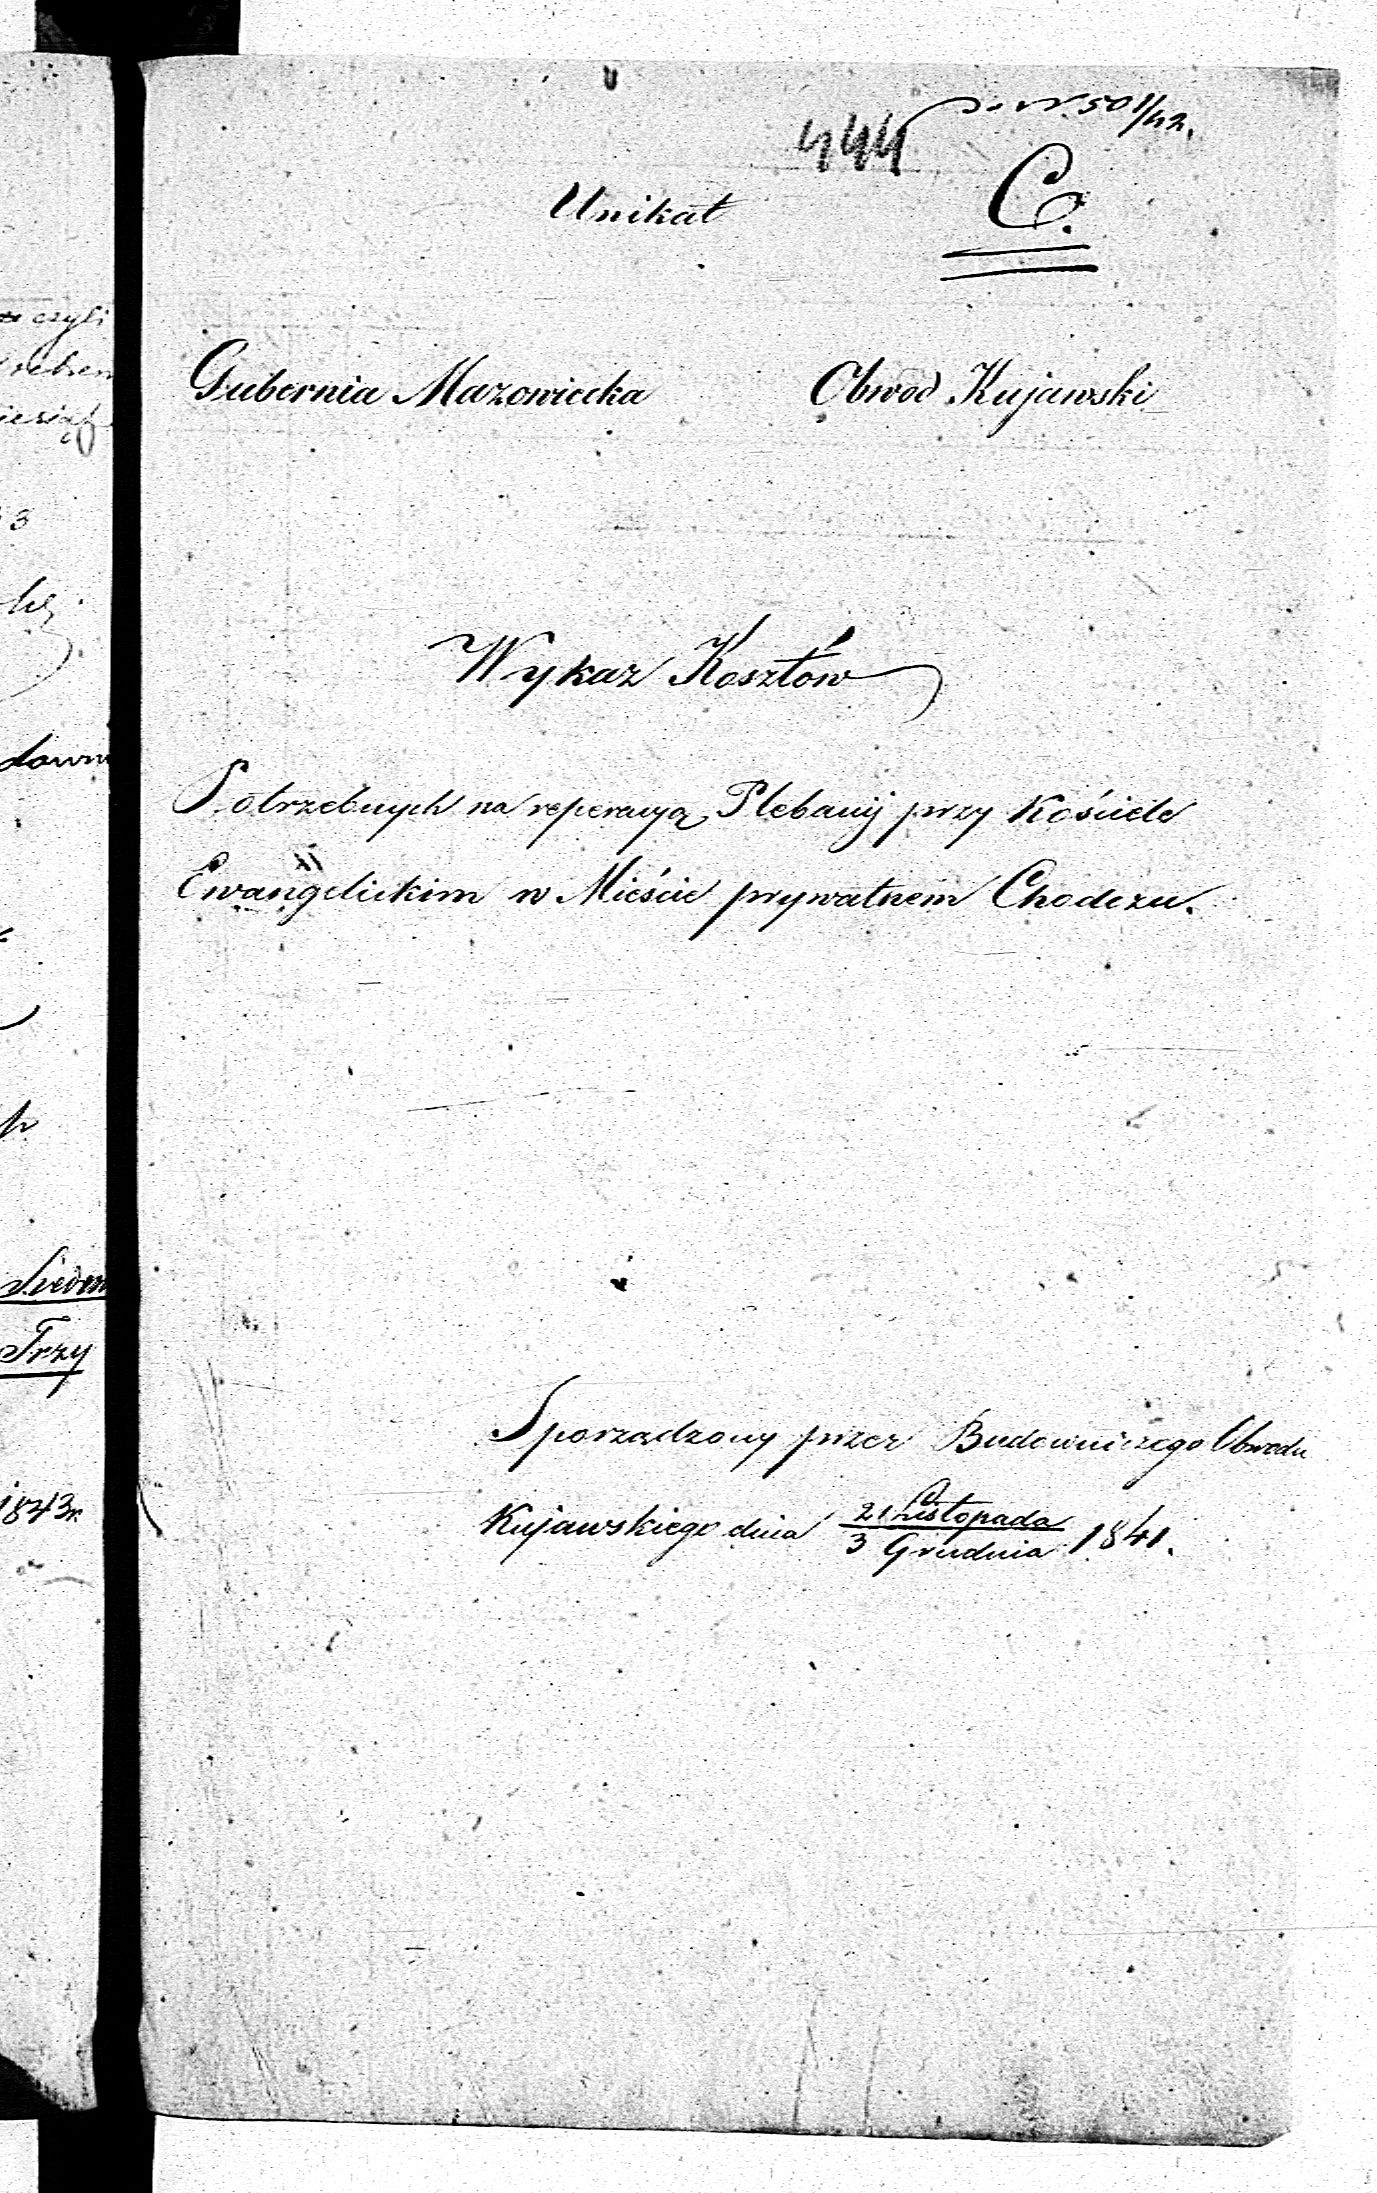 N. 501/42.
444
Unikat
C.
Gubernia Mazowiecka Obwod Kujawski
Wykaz Kosztów
Potrzebnych na reperacyą Plebanij przy Kościele
Ewangelickim w Mieście prywatnem Chodczu.
Sporządzony przez Budowniczego Obwodu
Kujawskiego dnia 21 Listopada / 3 Grudnia 1841.
czyli
3
Siedm
Trzy
1843r.